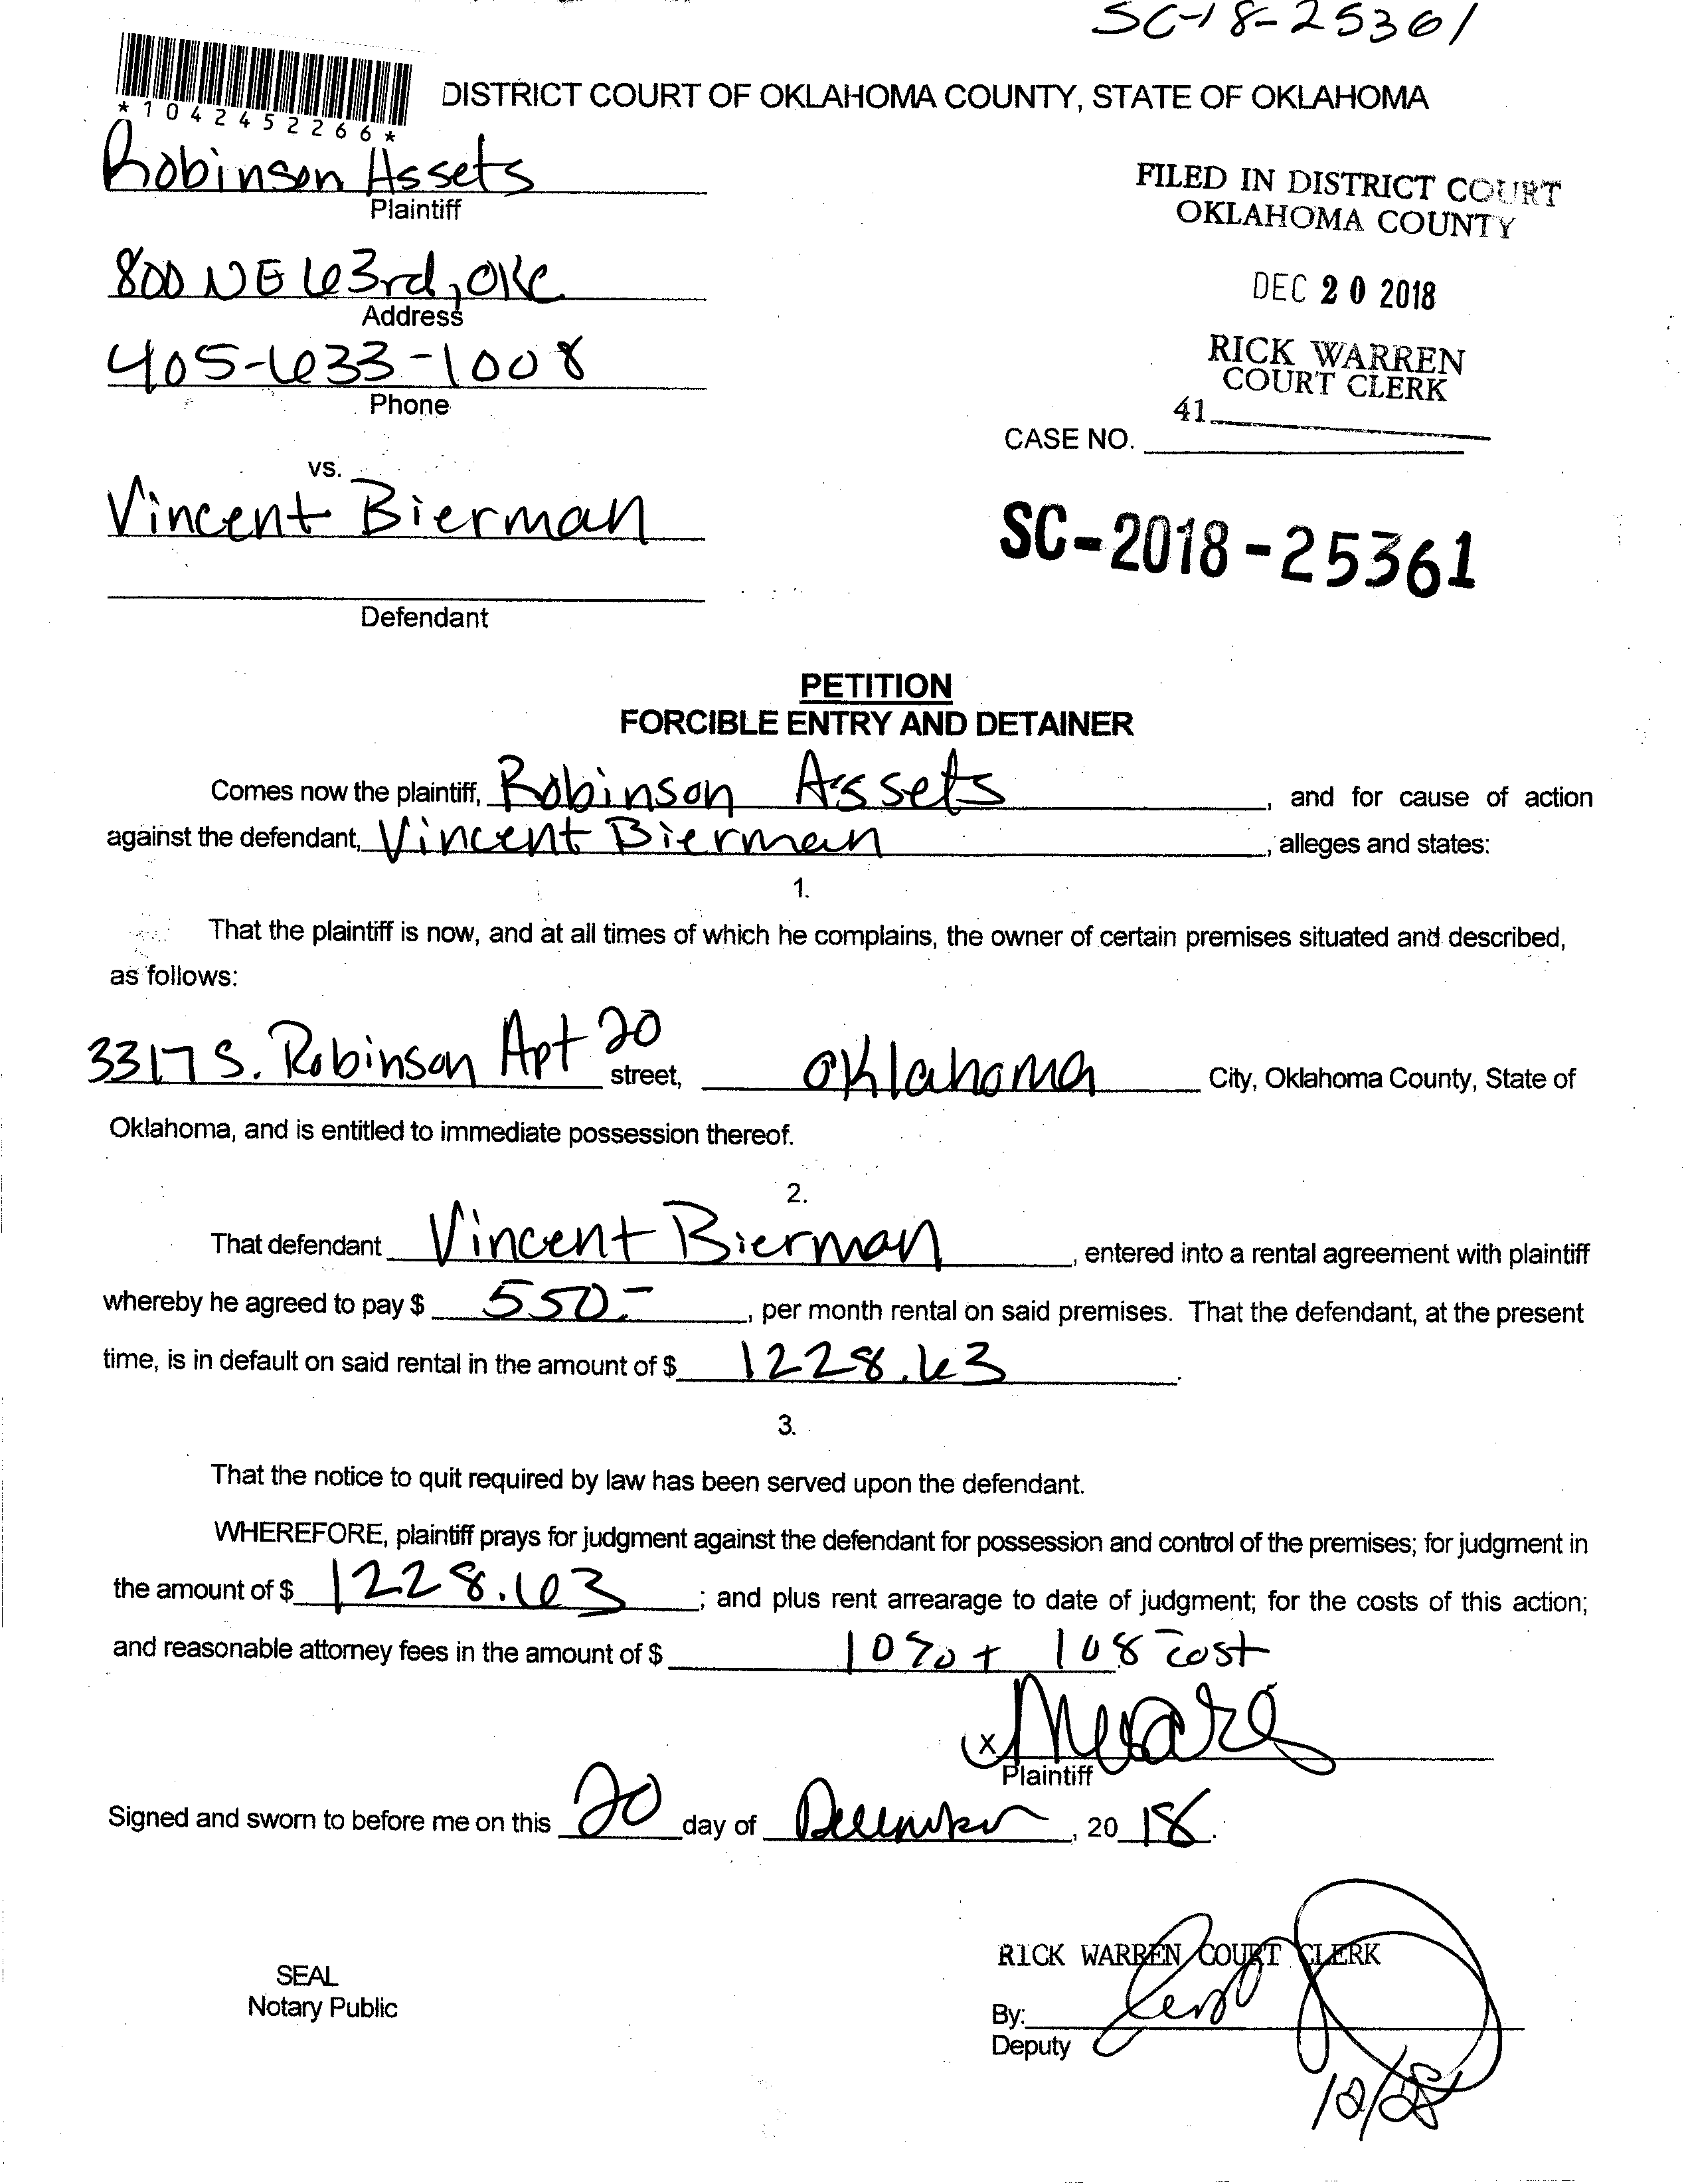 SC-18-25361
*1042452266*
DISTRICT COURT OF OKLAHOMA COUNTY, STATE OF OKLAHOMA
Robinson Assets
Plaintiff
FILED IN DISTRICT COURT
OKLAHOMA COUNTY
800 NE 63rd, OKC
Address
DEC 20 2018
405-633-1008
Phone
RICK WARREN
COURT CLERK
41
CASE NO.
vs.
Vincent Bierman
SC-2018-25361
Defendant
PETITION
FORCIBLE ENTRY AND DETAINER
Comes now the plaintiff, Robinson Assets, and for cause of action
against the defendant, Vincent Bierman, alleges and states:
1.
That the plaintiff is now, and at all times of which he complains, the owner of certain premises situated and described,
as follows:
3317 S. Robinson Apt 20 street, Oklahoma City, Oklahoma County, State of
Oklahoma, and is entitled to immediate possession thereof.
2.
That defendant Vincent Bierman, entered into a rental agreement with plaintiff
whereby he agreed to pay $ 550.-, per month rental on said premises. That the defendant, at the present
time, is in default on said rental in the amount of $ 1228.63.
3.
That the notice to quit required by law has been served upon the defendant.
WHEREFORE, plaintiff prays for judgment against the defendant for possession and control of the premises; for judgment in
the amount of $ 1228.63; and plus rent arrearage to date of judgment; for the costs of this action;
and reasonable attorney fees in the amount of $ 10% + 108 cost
x
Plaintiff
Signed and sworn to before me on this 20 day of December, 2018.
RICK WARREN COURT CLERK
SEAL
Notary Public
By:
Deputy